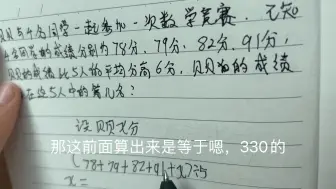 贝贝与4个同学一起参加一次数学竞赛,已知
4个同学的成绩分别为78分,79分,82分,91分,
贝贝的成绩比5人的平均分高6分,贝贝的成绩
在这5人中的第几名?
设贝贝x分
(78+79+82+91+x)÷5
x=
那这前面算出来是等于嗯,330的